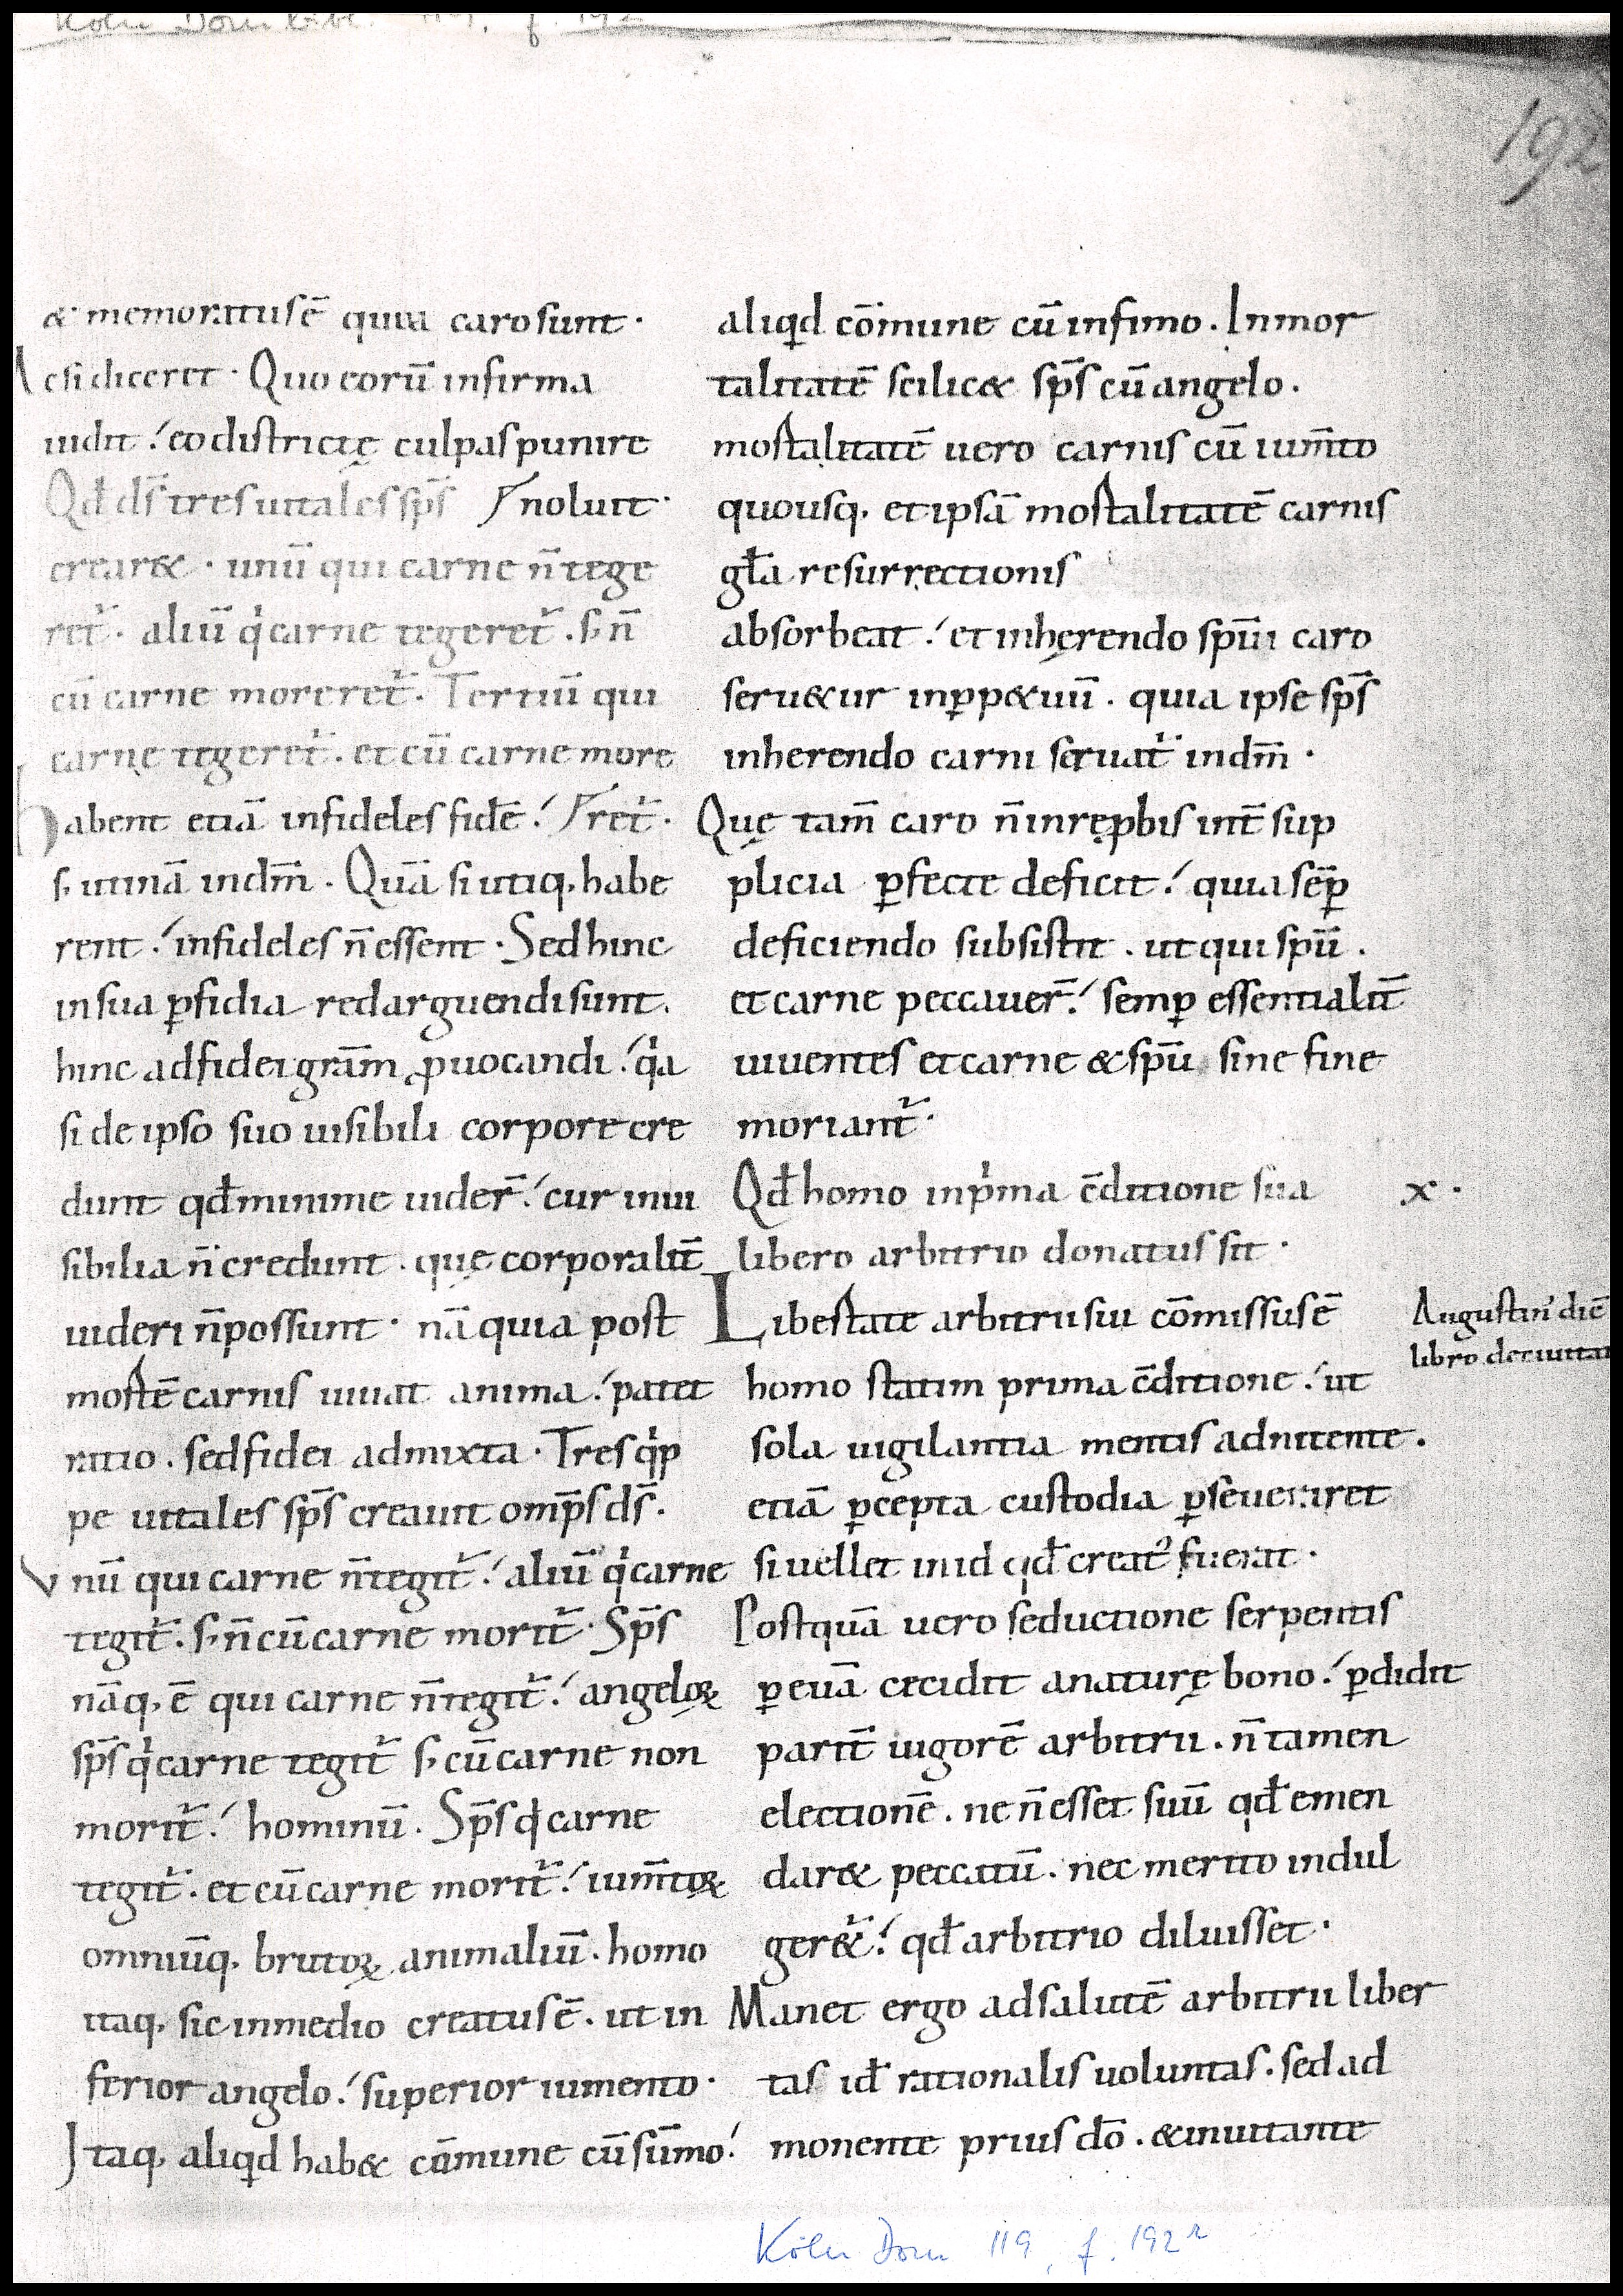 Köln Dom bibl. 119, f. 192
192
& memoratus ē quia caro sunt ·
Ac si diceret · Quo eorū infirma
uidit ⸵ eo districtę culpas punire
noluit ·
Qđ ds̄ tres uitales sp̄s
crear& · unū qui carne n̄ tege
ret᷑ · aliū q̇ carne tegeret᷑ . s; n̄
cū carne moreret᷑ · Tertiū qui
carne tegeret᷑ . et cū carne more
ret᷑ ·
habent etiā infideles fidē ⸵
s; utinā in dm̄ . Quā si utiq; habe
rent ⸵ infideles n̄ essent · Sed hinc
in sua ꝑfidia redarguendi sunt .
hinc ad fidei grām ꝓuocandi ⸵ q̇a
si de ipso suo uisibili corpore cre
dunt qđ minime uider̄ ⸵ cur inui
sibilia n̄ credunt . quę corporalit̄
uideri n̄ possunt · nā quia post
mortē carnis uiuat anima ⸵ patet
ratio . sed fidei admixta · Tres q̇p
pe uitales sp̄s creauit omp̄s ds̄ .
Vnū qui carne n̄ tegit᷑ ⸵ aliū q̇ carne
tegit᷑ . s; n̄ cū carne morit᷑ · Sp̄s
nāq; ē qui carne n̄ tegit᷑ ⸵ angeloꝝ
sp̄s q̇ carne tegit᷑ s; cū carne non
morit᷑ ⸵ hominū . Sp̄s q̇ carne
tegit᷑ . et cū carne morit᷑ ⸵ ium̄toꝝ
omniūq; brutoꝝ animaliū . homo
itaq; sic in medio creatus ē . ut in
ferior angelo ⸵ superior iumento ·
Itaq; aliqd hab& cōmune cū sūmo ⸵
aliqd cōmune cū infimo . Inmor
talitatē scilic& sp̄s cū angelo .
mortalitatē uero carnis cū ium̄to
quousq; et ipsā mortalitatē carnis
gła resurrectionis
absorbeat ⸵ et inhęrendo spūi caro
seru&ur in ꝑp&uū . quia ipse sp̄s
inherendo carni seruat᷑ in dm̄ ·
Quę tam̄ caro n̄ in reꝓbis int̄ sup
plicia ꝑfecte deficit ⸵ quia sēꝑ
deficiendo subsistit . ut qui spū .
et carne peccauer̄ ⸵ semꝑ essentialit̄
uiuentes et carne & spū sine fine
moriant᷑ ·
Qđ homo in pͥma c̄ditione sua
libero arbitrio donatus sit ·
x ·
Libertate arbitrii sui cōmissus ē
homo statim prima c̄ditione ⸵ ut
sola uigilantia mentis adnitente .
etiā ꝑcepta custodia ꝑseueraret
si uellet in id qđ creat᷒ fuerat ·
Postquā uero seductione serpentis
ꝑ euā cecidit a naturę bono ⸵ ꝑdidit
parit̄ uigorē arbitrii . n̄ tamen
electionē . ne n̄ esset suū qđ emen
dar& peccatū . nec merito indul
ger&᷑ ⸵ qđ arbitrio diluisset ·
Manet ergo ad salutē arbitrii liber
tas id̄ rationalis uoluntas . sed ad
monente prius dō . & inuitante
Augustin᷒ dic
libro
Köln Dom 119, f. 192 r